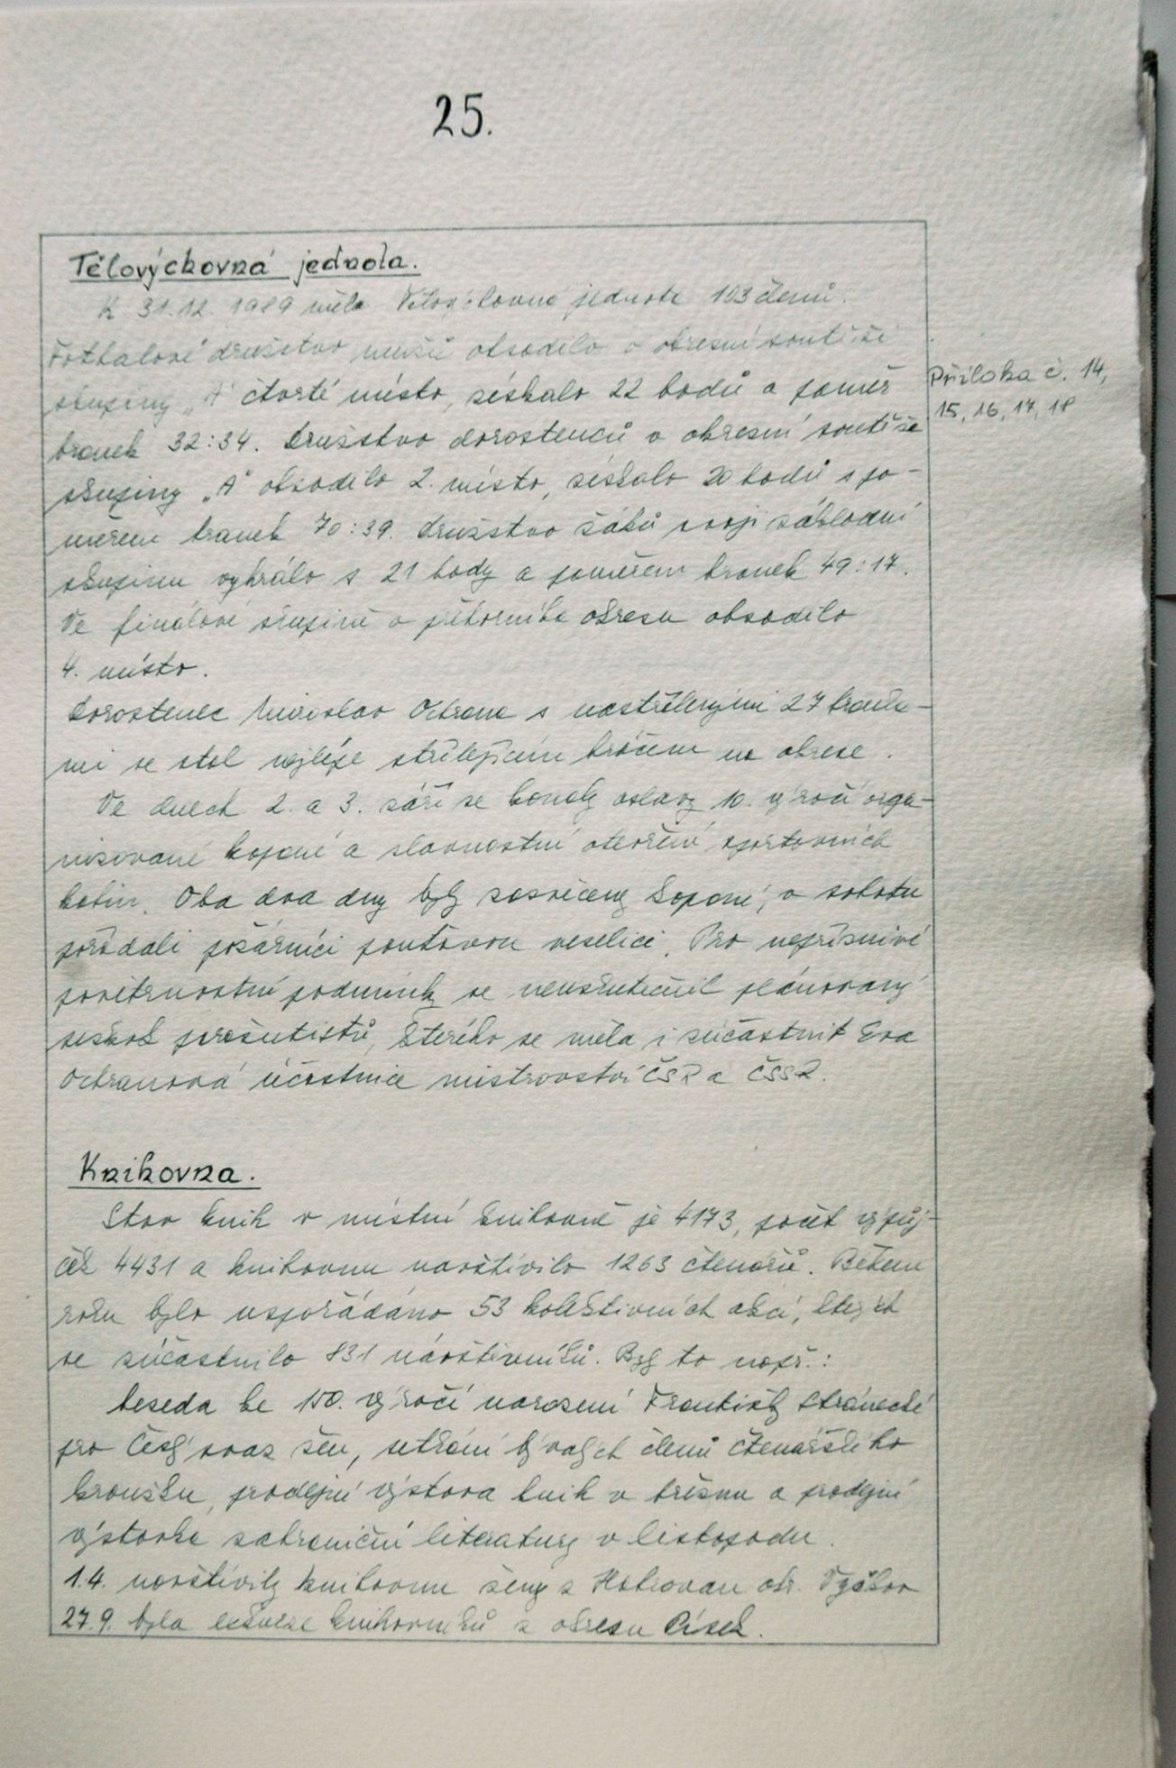 25.
Tělovýchovná jednota.
K 31.12. 1989 měla Tělovýchovná jednota 103 členů.
Fotbalové družstvo mužů obsadilo v okresní soutěži
skupiny „A" čtvrté místo, získalo 22 bodů a poměr
Příloha č. 14,
15, 16, 17, 18
branek 32:34. Družstvo dorostenců v okresní soutěže
skupiny „A" obsadilo 2. místo, získalo 20 bodů s po-
měrem branek 70:39. Družstvo žáků svoji základní
skupinu vyhrálo s 21 body a poměrem branek 49:17.
Ve finálové skupině o přeborníka okresu obsadilo
4. místo.
Dorostenec Miroslav Ochrana s nastřílenými 27 branka-
mi se stal nejlépe střílejícím hráčem na okrese.
Ve dnech 2. a 3. září se konaly oslavy 10. výročí orga-
nisované kopané a slavnostní otevření sportovních
kabin. Oba dva dny byly zasvěceny kopané, v sobotu
pořádali požárníci pouťovou veselici. Pro nepříznivé
povětrnostní podmínky se neuskutečnil plánovaný
seskok parašutistů, kterého se měla i zúčastnit Eva
Ochranová účastnice mistrovství ČSR a ČSSR.
Knihovna.
Stav knih v místní knihovně je 4173, počet výpůj-
ček 4431 a knihovnu navštívilo 1263 čtenářů. Během
roku bylo uspořádáno 53 kolektivních akcí, kterých
se zúčastnilo 831 návštěvníků. Byly to např.:
beseda ke 150. výročí narození Františky Stránecké
pro Český svaz žen, setkání bývalých členů čtenářského
kroužku, prodejní výstava knih v březnu a prodejní
výstavka zahraniční literatury v listopadu.
1.4. navštívily knihovnu ženy z okr. Vyškov
27.9. byla exkurze knihovníků z okresu Písek.